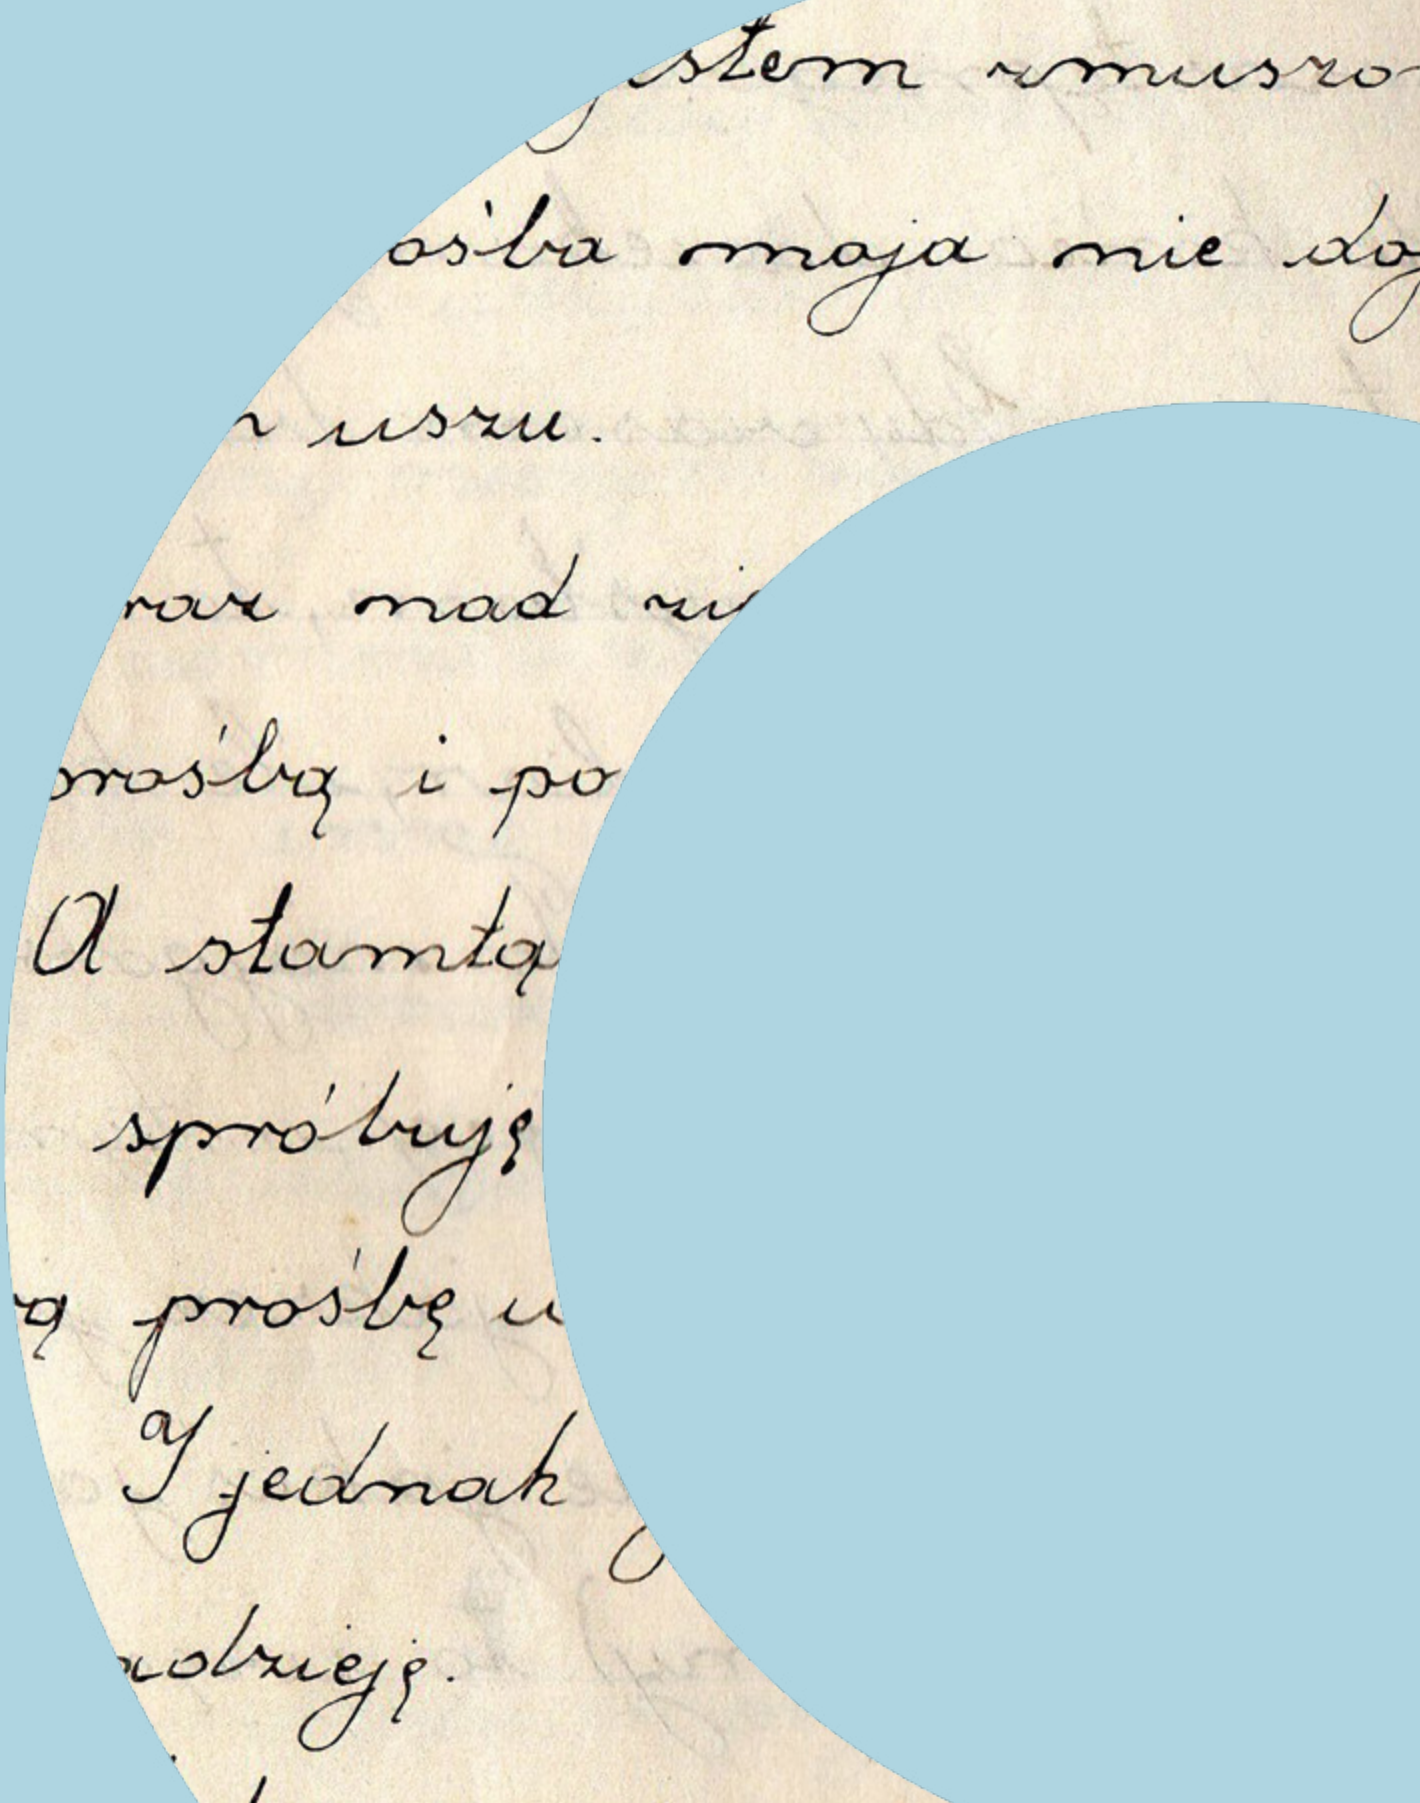 jestem zmuszo
ośba moja nie doj
uszu.
raz nad zie
prośbą i po
A stamtą
spróbuję
ą prośbę u
I jednak
adzieję.